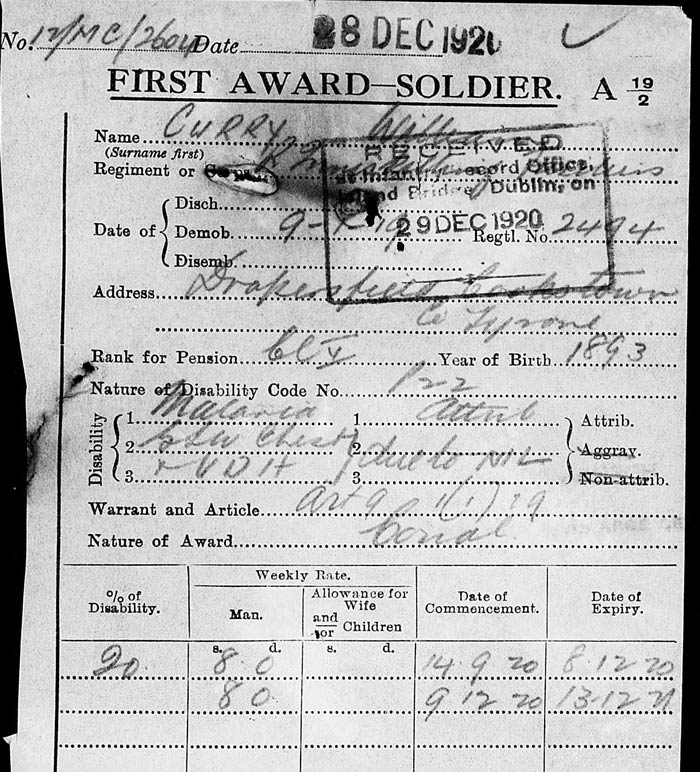 No. 12/MC/2604 Date 28 DEC 1920
FIRST AWARD—SOLDIER. A 19/2
Name CURRY
(Surname first)
RECEIVED
Infantry Record Office,
Island Bridge, Dublin, on
29 DEC 1920
Regiment or
Disch.
Date of Demob. 9-1-19 Regtl. No. 2494
Disemb.
Address Drapersfield Cookstown
Co Tyrone
Rank for Pension Cl V Year of Birth 1893
Nature of Disability Code No. P22
Disability
1. Malaria 1 Attrib Attrib.
2. GSW Chest 2 due to Aggrav.
3. & VDH 3 NIL Non-attrib.
Warrant and Article Art 9 1(1) 19
Nature of Award Condl
% of Disability.
Weekly Rate.
Man.
Allowance for Wife and/or Children
Date of Commencement.
Date of Expiry.
s. d. s. d.
20 8 0 14 9 20 8 12 20
8 0 9 12 20 13 12 21